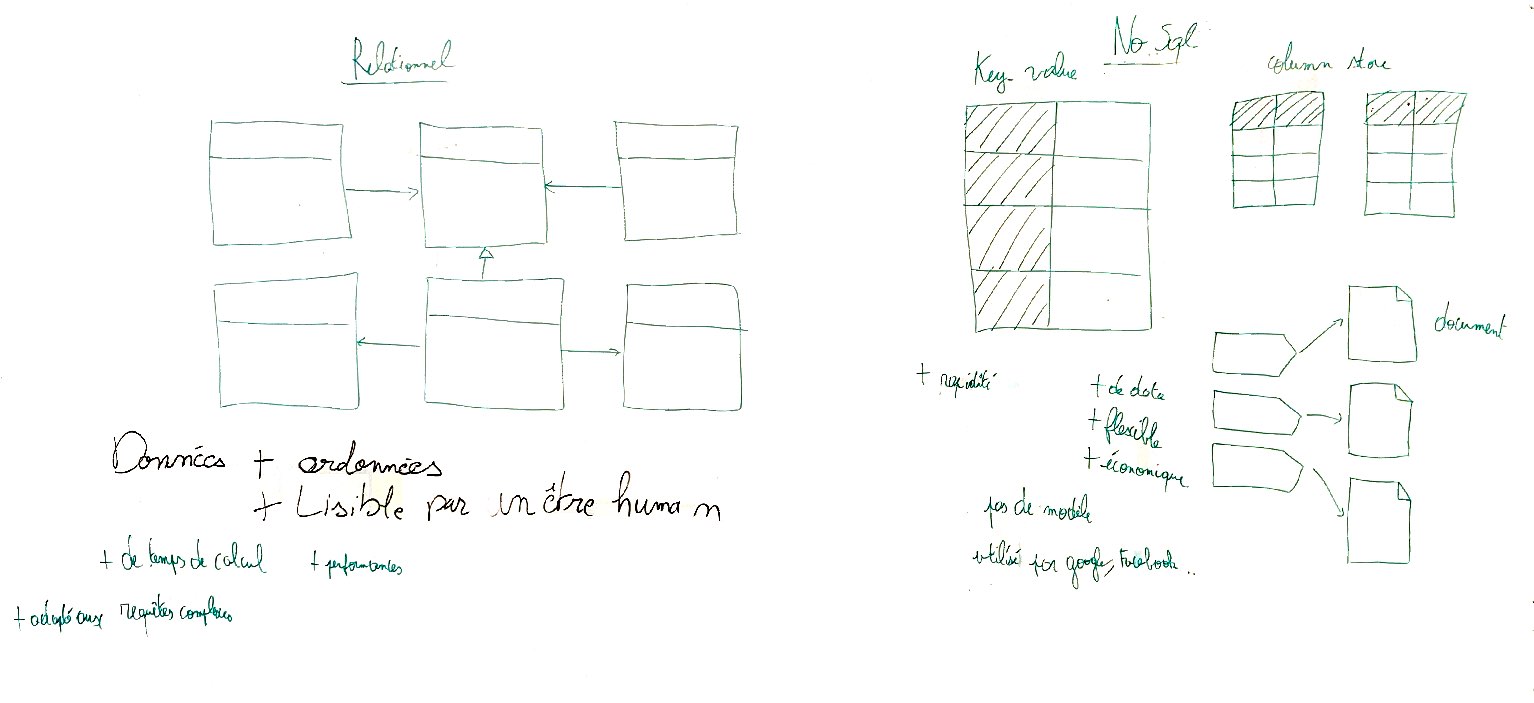 Relationnel
Données + ordonnées
+ Lisible par un être humain
+ de temps de calcul + performantes
+ adapté aux requêtes complexes
No Sql
Key-value
column store
document
+ rapidité
+ de data
+ flexible
+ économique
pas de modèle
utilisé par google, Facebook..